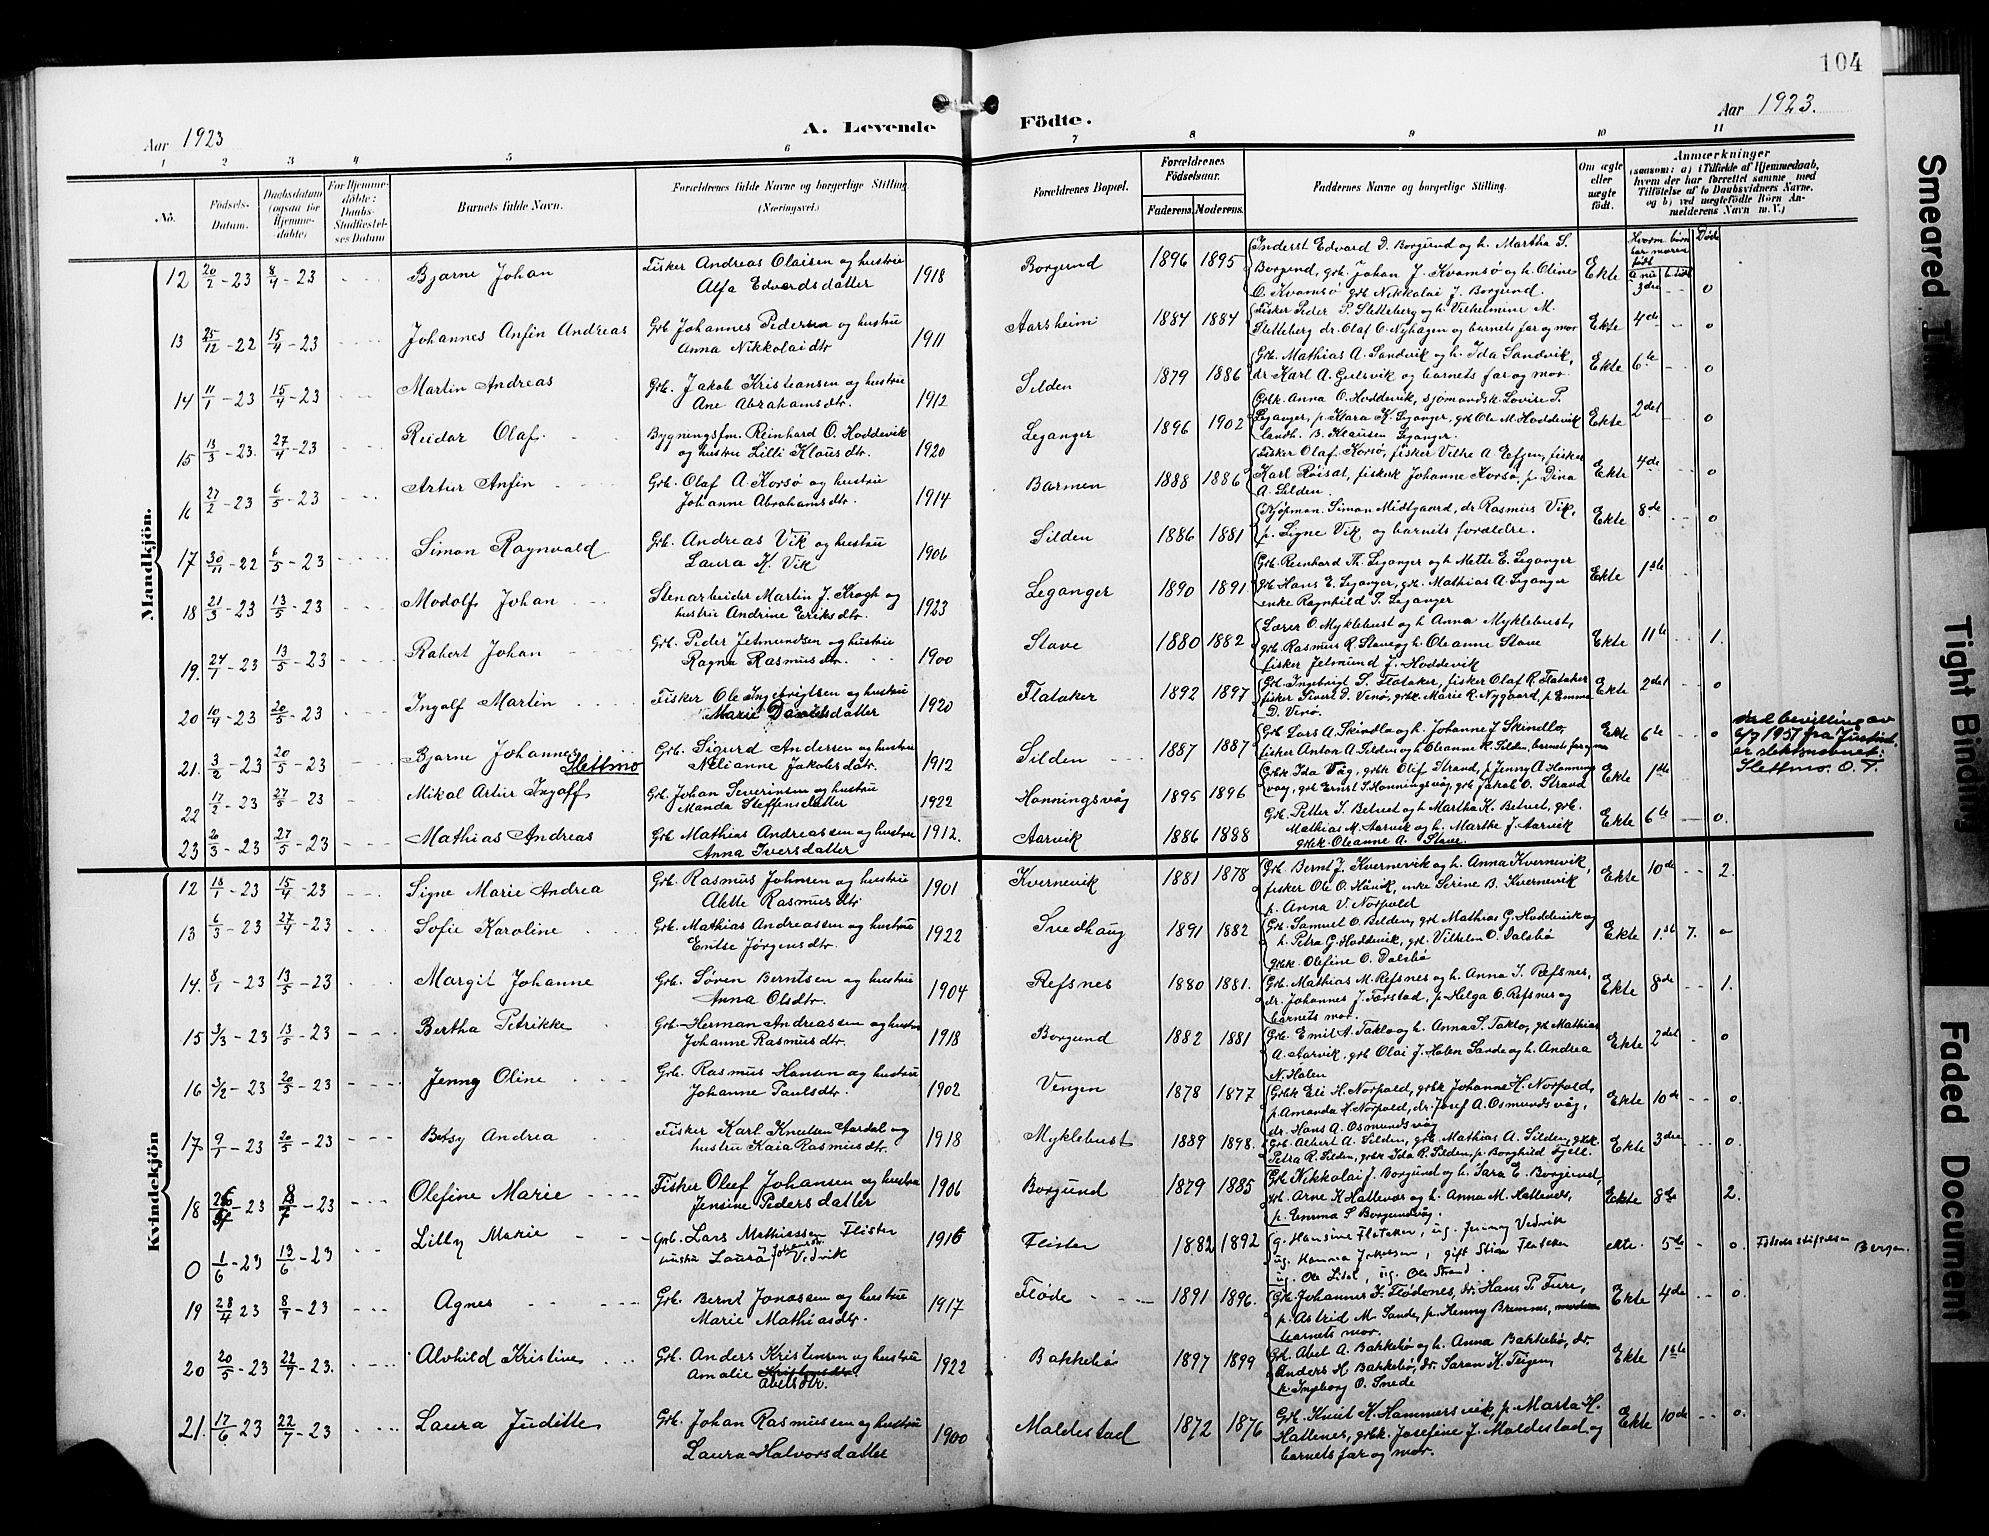 104
Aar 1923
A. Levende Födte.
Aar 1923.
1 2 3 4 5 6 7 8 9 10 11
No.
Födsels-
Datum.
Daabsdatum
(ogsaa for
Hjemme-
døbte)
For Hjemme-
døbte:
Daabs-
Stadfæstel-
ses Datum
Barnets fulde Navn.
Forældrenes fulde Navne og borgerlige Stilling
(Næringsvei.)
Forældrenes Bopæl.
Forældrenes
Födselsaar.
Faderens. Moderens.
Faddernes Navne og borgerlig Stilling.
Om ægte
eller
uægte
födt.
Anmærkninger
(saasom: a) i Tilfælde af Hjemmedaab,
hvem der har forrettet samme, med
Tilföielse af to Daabsvidners Navne,
og b) ved uægtefödte Börn An-
melderens Navn m. V.)
Mandkjön.
12 20/2 - 23 8/4 - 23 Bjarne Johan Fisker Andreas Olaisen og hustru
Alfa Edvardsdatter 1918 Borgund 1896 1895 Inderst Edvard D. Borgund og h. Martha S.
Borgund, grb. Johan J. Kvamsø og h. Oline
O. Kvamsø grb. Nikkolai J. Borgund. Ekte 3die 0
13 25/12 - 22 15/4 - 23 Johannes Anfin Andreas Grb Johannes Pedersen og hustru
Anna Nikkolaidtr 1911 Aarsheim 1884 1884 Fisker Peder P. Sletteberg og h. Vilhelmine M.
Sletteberg dr. Olaf O. Nyhagen og barnets far og mor Ekte 4de 0
14 11/1 - 23 15/4 - 23 Martin Andreas Grb. Jakob Kristiansen og hustru
Ane Abrahamsdtr. 1912 Silden 1879 1886 Grb. Mathias A. Sandvik og h. Ida Sandvik,
dr Karl A. Gulsvik og barnets far og mor. Ekte 6te 0
15 13/3 - 23. 27/4 - 23 Reidar Olaf Bygningsfm. Reinhard O. Hoddevik
og hustru Lilli Klausdtr. 1920 Leganger 1896 1902 Grbk. Anna O. Hoddevik, sjømandsk. Lovise P.
Leganger, p. Klara K. Leganger, grb Ole M. Hoddevik
landh. B. Klausen Leganger. Ekte 2det 0
16 27/2 - 23 6/5 - 23 Artur Anfin Grb. Olaf A. Korsø og hustru
Johanne Abrahamsdtr. 1914 Barmen 1888 1886 Fisker Olaf Korsø, fisker Vilhe A Eltgen, fisker
Karl Røisat, fiskerk Johanne Korsø, p. Dina
A. Silden. Ekte 4de 0
17 30/11 - 22 6/5 - 23 Simon Ragnvald Grb. Andreas Vik og hustru
Laura K. Vik 1906 Silden 1886 1881 Kjøpman. Simon Midtgaard, dr Rasmus Vik,
p. Signe Vik og barnets forældre. Ekte 8de 0
18 21/3 - 23 13/5 - 23 Modolf Johan Stenarbeider Martin J. Krogh og
hustru Andrine Eriksdtr. 1923 Leganger 1890 1891 Grb. Reinhard Th. Leganger og h. Mette E. Leganger
grb Hans E. Leganger, grb. Mathias A. Leganger
enke Ragnhild S. Leganger Ekte 1ste
19. 27/1 - 23 13/5 - 23 Rahert Johan Grb. Peder Jetmundsen og hustru
Ragna Rasmusdtr. 1900 Stave 1880 1882 Lærer O Myklebust og h Anna Myklebust,
grb Rasmus R. Stave og h Oleanne Stave
fisker Jetmund J. Hoddevik Ekte 11te 1.
20 10/4 - 23 20/5 - 23 Ingolf Martin Fisker Ole Ingebrigtsen og hustru
Marie Davidsdatter 1920 Flataker 1892 1897 Grb. Ingebrigt S. Flataker, fisker Olaf R. Flataker
fisker Sivert D. Venø, grbk. Marie R. Nygaard, p. Emma
D. Venø. Ekte 2det 0
21. 3/2 - 23 20/5 - 23 Bjarne Johannes Slettmo Grb. Sigurd Andersen og hustru
Nelianne Jakobsdtr. 1912 Silden 1887 1887 Grb Lars A. Skindlo og h. Johanne J Skindlo,
fisker Anton A. Silden og h Oleanne K. Silden, barnets far og mor Ekte 6te 0
Ved bevilling av
6/7 1951 fra Justisd.
er slektsnavnet:
Slettmo. O. T.
22 17/2 - 23 27/5 - 23 Mikal Artur Ingolf Grb. Johan Severinsen og hustru
Manda Steffensdatter 1922 Honningsvåg 1895 1896 Grbk Ida Våg, grbk Olif Strand, p Jenny A Honning
våg, grb Ernst S. Honningsvåg, grb Jakob O. Strand Ekte 1ste
23 20/3 - 23 27/5 - 23 Mathias Andreas Grb. Mathias Andreassen og hustru
Anna Iversdatter 1912. Aarvik 1886 1888 Grb. Petter S. Betvet og h Martha K. Betvet, grb.
Mathias M. Aarvik og h. Marthe J. Aarvik
grbk. Oleanne A. Stave. Ekte 6te 0.
Kvindekjön
12 18/1 - 23 15/4 - 23 Signe Marie Andrea Grb. Rasmus Johnsen og hustru
Alette Rasmusdtr 1901 Kvernevik 1881 1878 Grb Bernt J. Kvernevik og h. Anna Kvernevik,
fisker Ole O. Håvik, enke Serine B. Kvernevik
p. Anna V. Norpold Ekte 10de 2.
13 6/3 - 23 27/4 - 23 Sofie Karoline Grb. Mathias Andreassen og hustru
Entse Jørgensdtr. 1922 Svedhaug 1891 1882 Grb. Samuel O. Belden, grb Mathias G. Hoddevik og
h. Petra G. Hoddevik, grb. Vilhelm O. Dalsbø
grbk. Olefine O. Dalsbø Ekte 1.st 7. 0
14. 8/1 - 23 13/5 - 23 Margit Johanne Grb. Søren Berntsen og hustru
Anna Olsdtr. 1904 Refsnes 1880 1881. Grb. Mathias M. Refsnes og h. Anna S. Refsnes,
dr. Johannes J. Forstad, p. Helga O. Refsnes og
barnets mor. Ekte 8de 1.
15 3/3 - 23 13/5 - 23 Bertha Petrikke Grb. Herman Andreassen og hustru
Johanne Rasmusdtr. 1918 Borgund 1882 1881 Grb. Emil A. Taklo og h. Anna S. Taklo, grb Mathias
A. Aarvik, grb Olai J. Halen Sande og h. Andrea
N. Halen Ekte 2det 0
16 3/2 - 23 20/5 - 23 Jenny Oline Grb. Rasmus Hansen og hustru
Johanne Paulsdtr. 1902 Vengen 1878 1877 Grbk Eli H. Norpold, grbk Johanne H. Norpold,
p. Amanda H. Norpold, dr. Josef A. Osmundsvåg,
dr. Hans A. Osmundsvåg Ekte 10de 0.
17 9/1 - 23 20/5 - 23 Betsy Andrea Fisker Karl Knutsen Aardal og
hustru Kaia Rasmusdtr. 1918 Myklebust 1889 1898. Grb. Albert A. Silden, grb. Mathias A. Silden, grbk.
Petra R. Silden, grbk Ida R. Silden, p. Borghild Fjell. Ekte 3die 0.
18 - 23 8/7 - 23 Olefine Marie Fisker Oluf Johansen og hustru
Jensine Pedersdatter 1906 Borgund 1879 1885 Grb Nikkolai J. Borgund og h. Sara E. Borgund,
grb. Arne K Hattevær og h. Anna M. Hattevær,
p. Emma S Borgundvåg. Ekte 8de 2.
0 1/6 - 23 13/6 - 23 Lilly Marie Grb. Lars Mathiassen Flister
hustru Laura Johansdtr. Vedvik 1916 Flister 1882 1892 g. Hansine Flataker, ug. Jenny Vedvik
ug. Hanna Jakobsen, gift Stian Flataker
ug. Ole Lidal, ug. Ole Strand. ekte. 5te 0. Fødselsstiftelsen Bergen.
19 28/4 23 8/7 - 23 Agnes Grb. Bernt Jonassen og hustru
Marie Mathiasdtr. 1917 Fløde 1891 1896. Grb. Johannes K. Flødenes, dr. Hans P. Fure,
p. Astrid M. Sande, p. Henny Bremnes,
barnets mor. Ekte 4de 0.
20 20/5 - 23 22/7 - 23. Alvhild Kristine Grb. Anders Kristensen og hustru
Amalie Abelsdtr. 1922 Bakkebø 1897 1899 Grb. Abel A. Bakkebø og h. Anna Bakkebø, dr.
Anders H Bakkebø, dr. Saran K. Teigen,
p. Ingborg O. Snede Ekte 1ste 0.
21. 17/6 - 23 22/7 - 23 Laura Juditte Grb. Johan Rasmussen og hustru
Laura Halvorsdatter 1900 Maldestad 1872 1876 Grb. Knut K. Hammersvik, p. Marta K.
Hattenes, grbk. Josefine J. Maldestad og
barnets far og mor. Ekte 10de 0.
Tight Binding
Faded Document